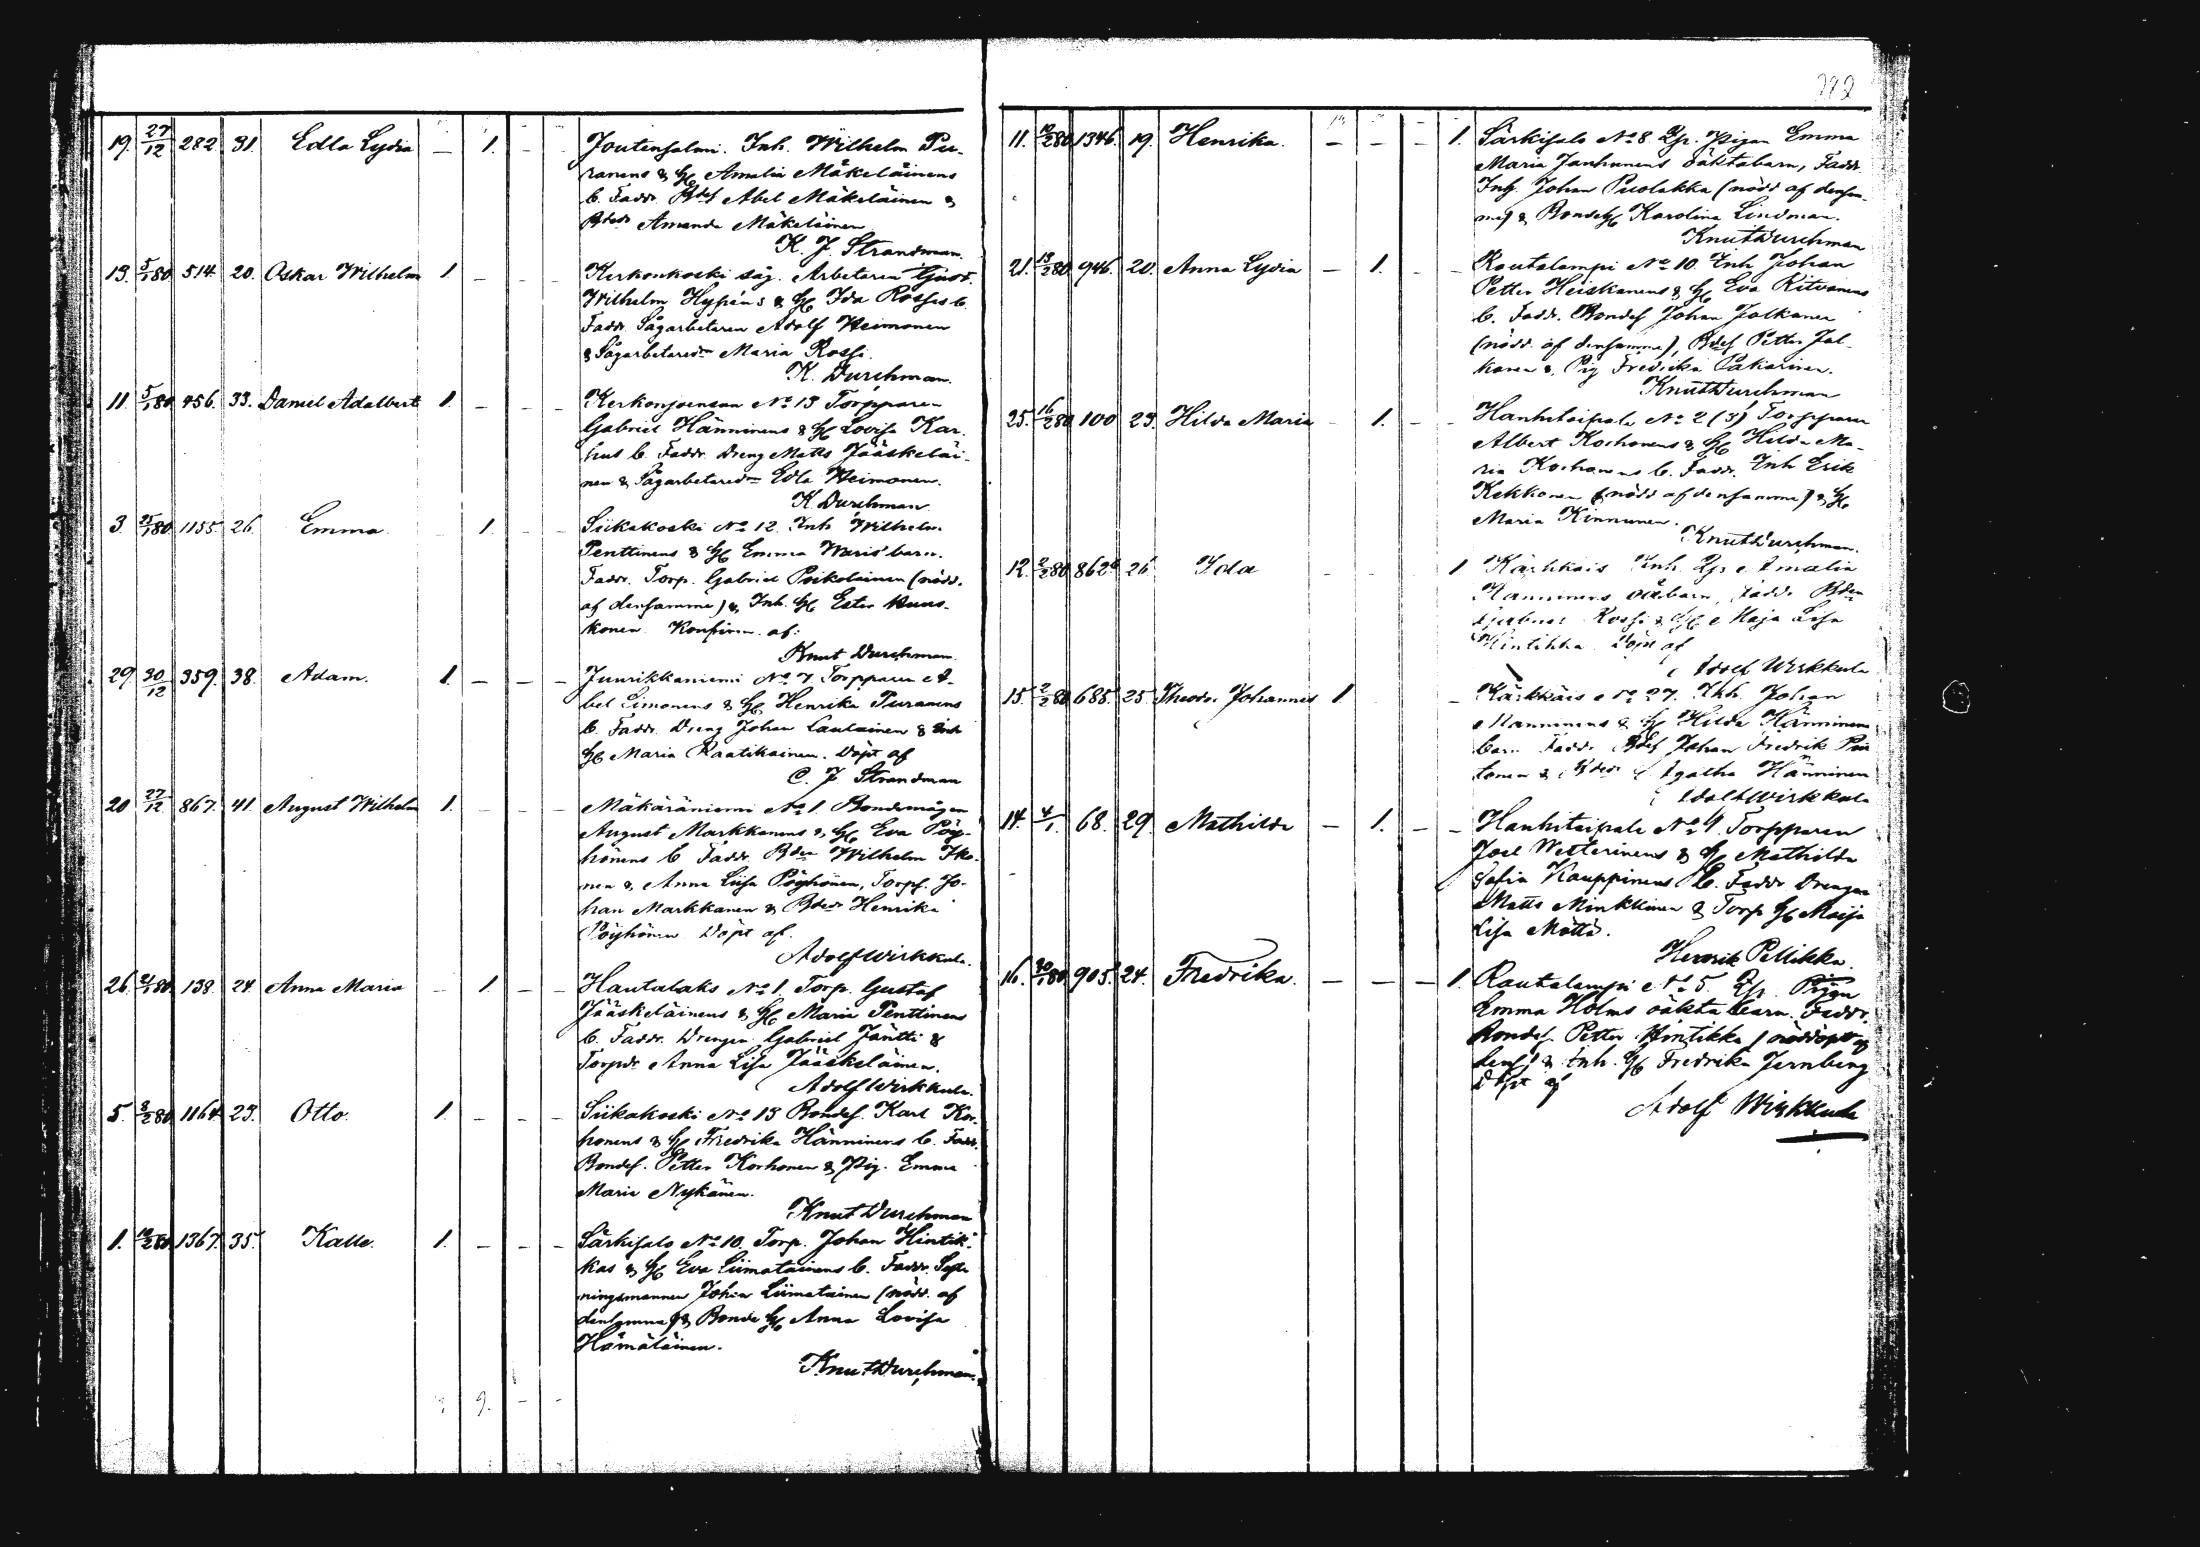 19. 27/12 282. 31. Edla Lydia — 1. Joutensalmi. Inh. Wilhelm Pu-
ranens & H. Amalia Mäkeläinens
b. Faddr. Bdes Abel Mäkeläinen &
Bdedr Amanda Mäkeläinen
K. J. Strandman.
13. 5/1 80 514. 20. Oskar Wilhelm 1. — — — Kerkonkoski såg. Arbetaren Gust.
Wilhelm Hypéns & H. Ida Rossis b.
Faddr. Sågarbetaren Adolf Heimonen
& Sågarbetaredr Maria Rossi.
K. Durchman.
11. 5/1 80 456. 33. Daniel Adalbert 1. — — — Kerkonjoensuu No 13 Torpparen
Gabriel Hänninens & H. Lovisa Kar-
hus b. Faddr. Dreng Matts Jääskeläi-
nen & Sågarbetaredr Edla Heimonen.
K. Durchman
3. 25/1 80 1155. 26. Emma. 1. — — Siikakoski No 12. Inh Wilhelm
Penttinens & H. Emma Waris' barn.
Faddr. Torp. Gabriel Poikolainen (nödd.
af densamme) & Inh. H. Ester Kuus-
konen. Konfirm. af:
Knut Durchman.
29. 30/12 359. 38. Adam. 1. — — — Juurikkaniemi No 7 Torpparen A-
bel Simonens & H. Henrika Puranens
b. Faddr. Dreng Johan Lautainen & Inh
H. Maria Raatikainen. Döpt af
C. J Strandman
20 27/12 867. 41. August Wilhelm 1. — — — Mäkäräniemi No 1. Bondemågen
August Markkanens & H. Eva Pöy-
hönens b Faddr. Bden Wilhelm Iko-
nen & Anna Liisa Pöyhönen, Torps. Jo-
han Markkanen & Bdedr Henrika
Pöyhönen Döpt af.
Adolf Wirkkula.
26. 2/1 80. 138. 24. Anna Maria — 1. — — Hautalaks No 1. Torp. Gustaf
Jääskeläinens & H. Maria Penttinens
b. Faddr. Drengen Gabriel Jäntti &
Torpdr Anna Lisa Jääskeläinen.
Adolf Wirkkula.
5. 8/2 80. 1164. 23. Otto. 1. — — — Siikakoski No 13 Bondes. Karl Kor-
honens & H. Fredrika Hänninens b. Faddr.
Bondes. Petter Korhonen & Pig. Emma
Maria Nykänen.
Knut Durchman
1. 10/2 80. 1367. 35. Kalle. 1. — — — Särkisalo No 10. Torp. Johan Hintik-
kas & H. Eva Liimatainens b. Faddr.
ningsmannen Johan Liimatainen (nödd. af
densamme) & Bonde H. Anna Lovisa
Hämäläinen.
Knut Durchman.
9. — —
11. 80 1346. 19. Henrika. — — — 1. Särkisalo No 8. Pigan Emma
Maria Janhunens oäkta barn, Faddr.
Inh. Johan Puolakka (nödd af densam-
me) & Bonde H. Karolina Lindman.
Knut Durchman
21. 13/2 80. 946. 20. Anna Lydia — 1. — — Rautalampi No 10. Inh Johan
Petter Heiskanens & H. Eva Ritvanens
b. Faddr. Bondes Johan Jalkanen
(nödd. af densamme), Bdes Petter Jal-
kanen & Pig Fredrika Pakarinen.
Knut Durchman
25. 16/2 80 100 23. Hilda Maria — 1. — — Hanhitaipale No 2 (3) Torpparen
Albert Korhonens & H. Hilda Ma-
ria Korhonens b. Faddr. Inh Erik
Kekkonen (nödd af densamme) & H.
Maria Kinnunen.
Knut Durchman.
12. 2/2 80 862 26. Ida — — 1 Kärkkäis Inh. Amalia
Hänninens oä. barn, Faddr. Bden
Rossi & H. Maja Lisa
Hintikka Döpt af
Adolf Wirkkula
15. 2/2 80 685. 25. Theodr. Johannes 1 — Kärkkäis No 27. Inh. Johan
Manninens & H. Hilda Hänninens
barn Faddr. Bdes Johan Fredrik
& Bdedr Agatha Hänninen
Adolf Wirkkula
14. 4/1. 68. 29. Mathilda — 1. — — Hanhitaipale No 4. Torpparen
Joel Wetterinens & H. Mathilda
Sofia Kauppinens b. Faddr Drengen
Matts Minkkinen & Torp H. Maija
Lisa Möttö.
Henrik Pellikka.
16. 80 905. 24. Fredrika. — — — 1. Rautalampi No 5. Pigan
Emma Holms oäkta barn. Faddr.
Bondes. Petter Hintikka (nöddöpt af
dens) & Inh. H. Fredrika Jernberg
Döpt af
Adolf Wirkkula